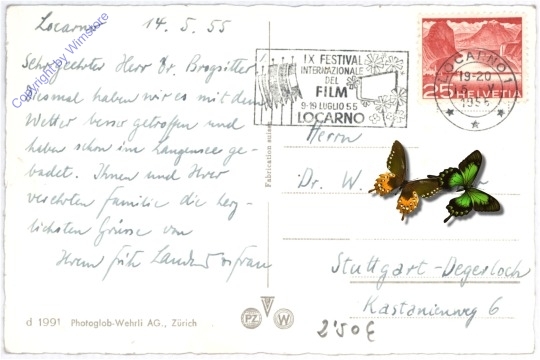 Locarno 14.5.55
Sehr geehrter Herr Dr. Brogsitter
diesmal haben wir es mit dem
Wetter besser getroffen und
haben schon im Langensee ge-
badet. Ihnen und Ihrer
verehrten Familie die herz-
lichsten Grüsse von
Ihrem Land & Frau
Copyright by Wimstore
d 1991 Photoglob-Wehrli AG., Zürich
IX FESTIVAL
INTERNAZIONALE
DEL
FILM
9-19 LUGLIO 55
LOCARNO
LOCARNO 1
19-20
25 HELVETIA
Fabrication suisse
Herrn
Dr. W.
Stuttgart-Degerloch
Kastanienweg 6
PZ W
2'50 €